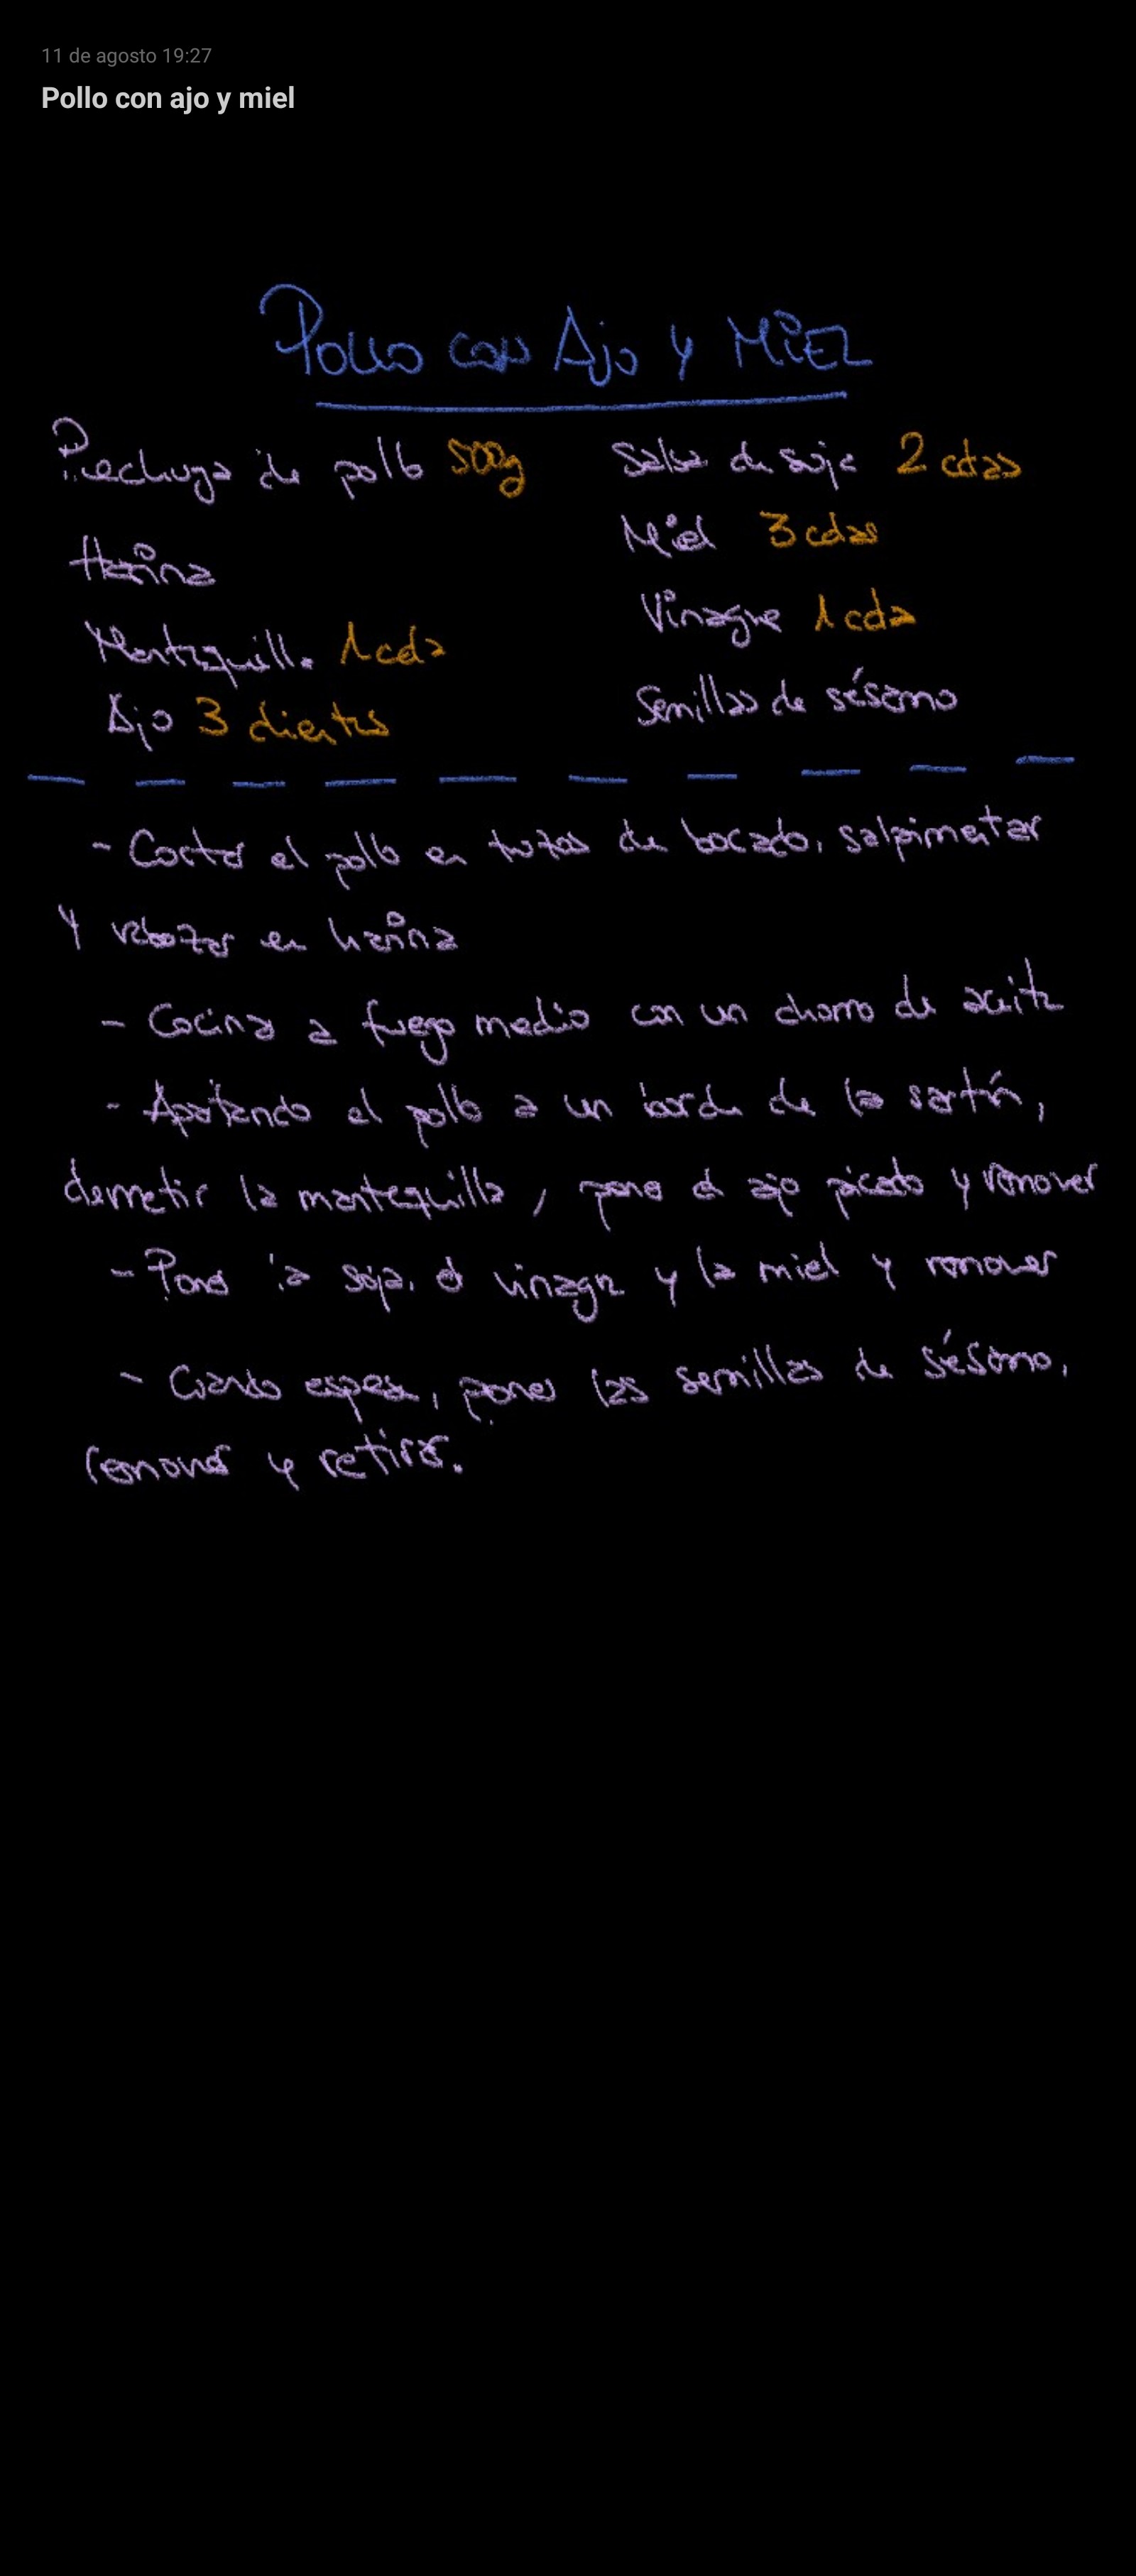 11 de agosto 19:27
Pollo con ajo y miel
Pollo con Ajo y Miel
Pechuga de pollo 500g
Harina
Mantequilla 1 cda
Ajo 3 dientes
Salsa de soja 2 cdas
Miel 3 cdas
Vinagre 1 cda
Semillas de sésamo
- Cortar el pollo en trozos de bocado, salpimentar
y rebozar en harina
- Cocinar a fuego medio con un chorro de aceite
- Apartando el pollo a un borde de la sartén,
derretir la mantequilla, poner el ajo picado y remover
- Poner la soja, el vinagre y la miel y remover
- Cuando espese, poner las semillas de sésamo,
remover y retirar.